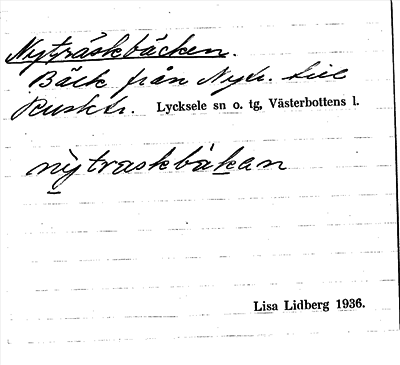 Nyträskbäcken.
Bäck från Nytr. till
Rusktr. Lycksele sn o. tg, Västerbottens l.
nỳtraskbàkan
Lisa Lidberg 1936.